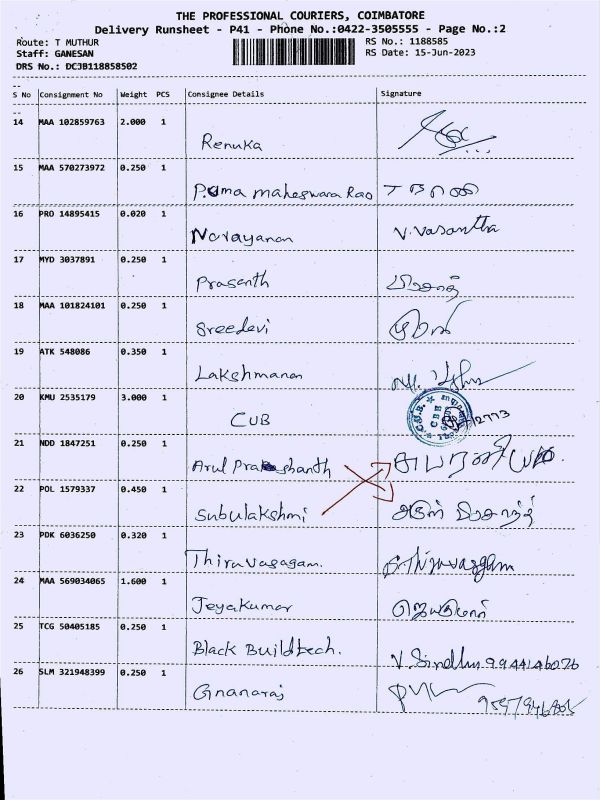 THE PROFESSIONAL COURIERS, COIMBATORE
Delivery Runsheet - P41 - Phone No.:0422-3505555 - Page No.:2
Route: T MUTHUR RS No.: 1188585
Staff: GANESAN RS Date: 15-Jun-2023
DRS No.: DCJB118858502
--
S No Consignment No Weight PCS Consignee Details Signature
--
14 MAA 102859763 2.000 1
Renuka
15 MAA 570273972 0.250 1
P.uma maheswara Rao
16 PRO 14895415 0.020 1
Narayanan V. Vasantha
17 MYD 3037891 0.250 1
Prasanth பிரசாந்த்
18 MAA 101824101 0.250 1
Sreedevi
19 ATK 548086 0.350 1
Lakshmanan
20 KMU 2535179 3.000 1
CUB
21 NDD 1847251 0.250 1
Arul Prakashanth
22 POL 1579337 0.450 1
Subulakshmi அருள் பிரசாந்த்
23 PDK 6036250 0.320 1
Thiruvasagam.
24 MAA 569034065 1.600 1
Jeyakumar ஜெயகுமார்
25 TCG 50405185 0.250 1
Black Buildtech. V. Sindhu. 9944146076
26 SLM 321948399 0.250 1
Gnanaraj